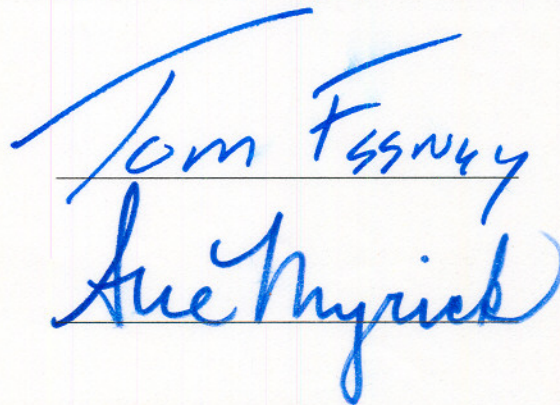 Tom Feeney
Sue Myrick